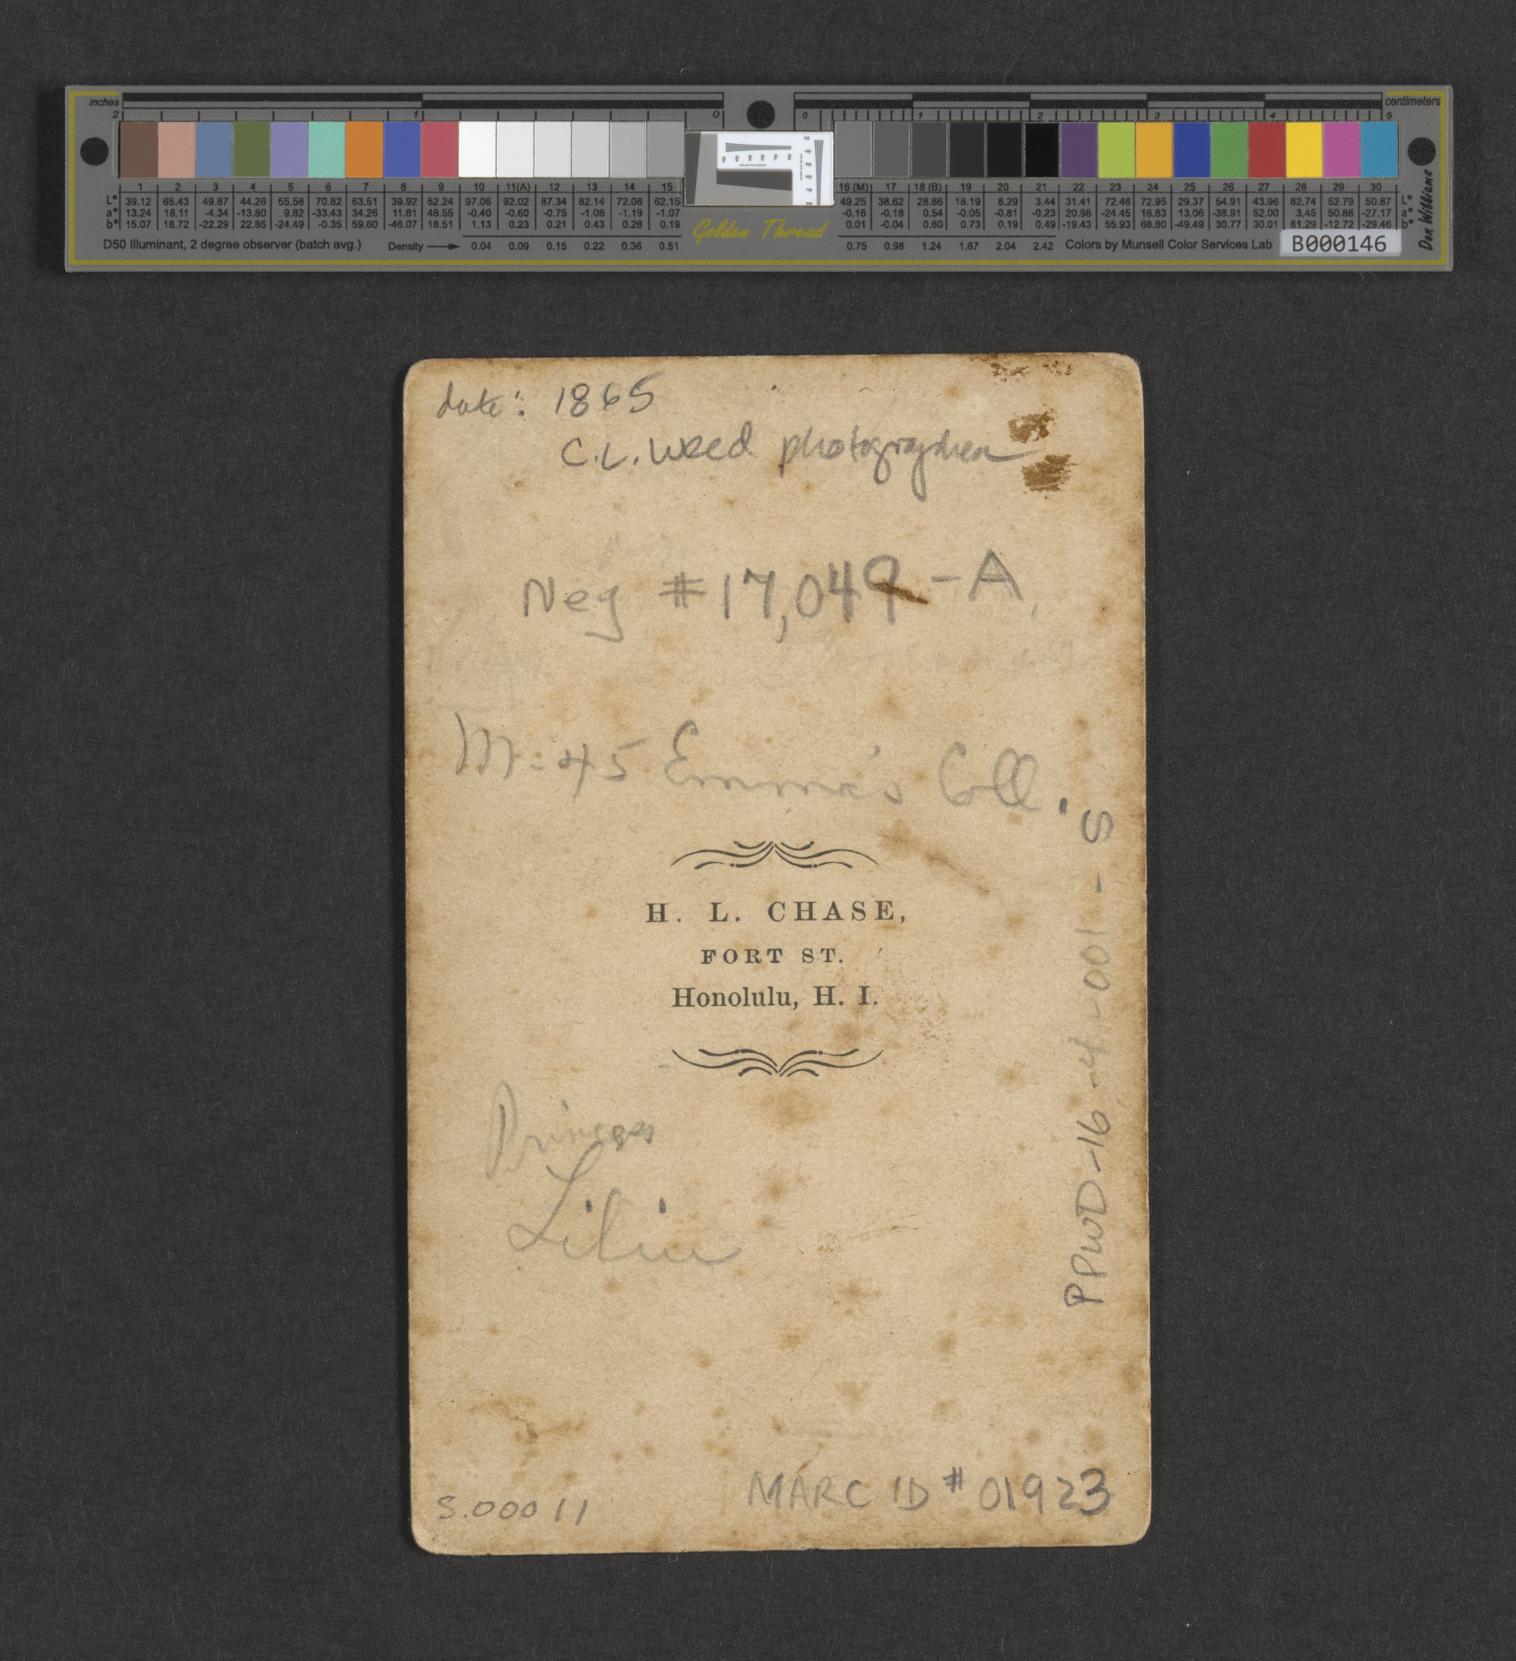 inches
centimeters
2 1 0 0 1 2 3 4 5
1 2 3 4 5 6 7 8 9 10 11(A) 12 13 14 15 16 (M) 17 18 (B) 19 20 21 22 23 24 25 26 27 28 29 30
L* 39.12 65.43 49.87 44.26 55.58 70.82 63.51 39.92 52.24 97.06 92.02 87.34 82.14 72.06 62.15 49.25 38.62 28.86 18.19 8.29 3.44 31.41 72.46 72.95 29.37 54.91 43.96 82.74 52.79 50.87 L*
a* 13.24 18.11 -4.34 -13.80 9.82 -33.43 34.26 11.81 48.55 -0.40 -0.60 -0.75 -1.06 -1.19 -1.07 -0.16 -0.18 0.54 -0.05 -0.81 -0.23 20.98 -24.45 16.83 13.06 -38.91 52.00 3.45 50.88 -27.17 a*
b* 15.07 18.72 -22.29 22.85 -24.49 -0.35 59.60 -46.07 18.51 1.13 0.23 0.21 0.43 0.28 0.19 0.01 -0.04 0.60 0.73 0.19 0.49 -19.43 55.93 68.80 -49.49 30.77 30.01 81.29 -12.72 -29.46 b*
D50 Illuminant, 2 degree observer (batch avg.) Density 0.04 0.09 0.15 0.22 0.36 0.51 0.75 0.98 1.24 1.67 2.04 2.42 Colors by Munsell Color Services Lab
Golden Thread
B000146
Don Williams
date: 1865
C.L. Weed photographer
Neg #17,049-A
M-45 Emma's Coll.
H. L. CHASE,
FORT ST.
Honolulu, H. I.
Princess
Liliu
PPWD-16-4-001-S
S.00011
MARC ID # 01923